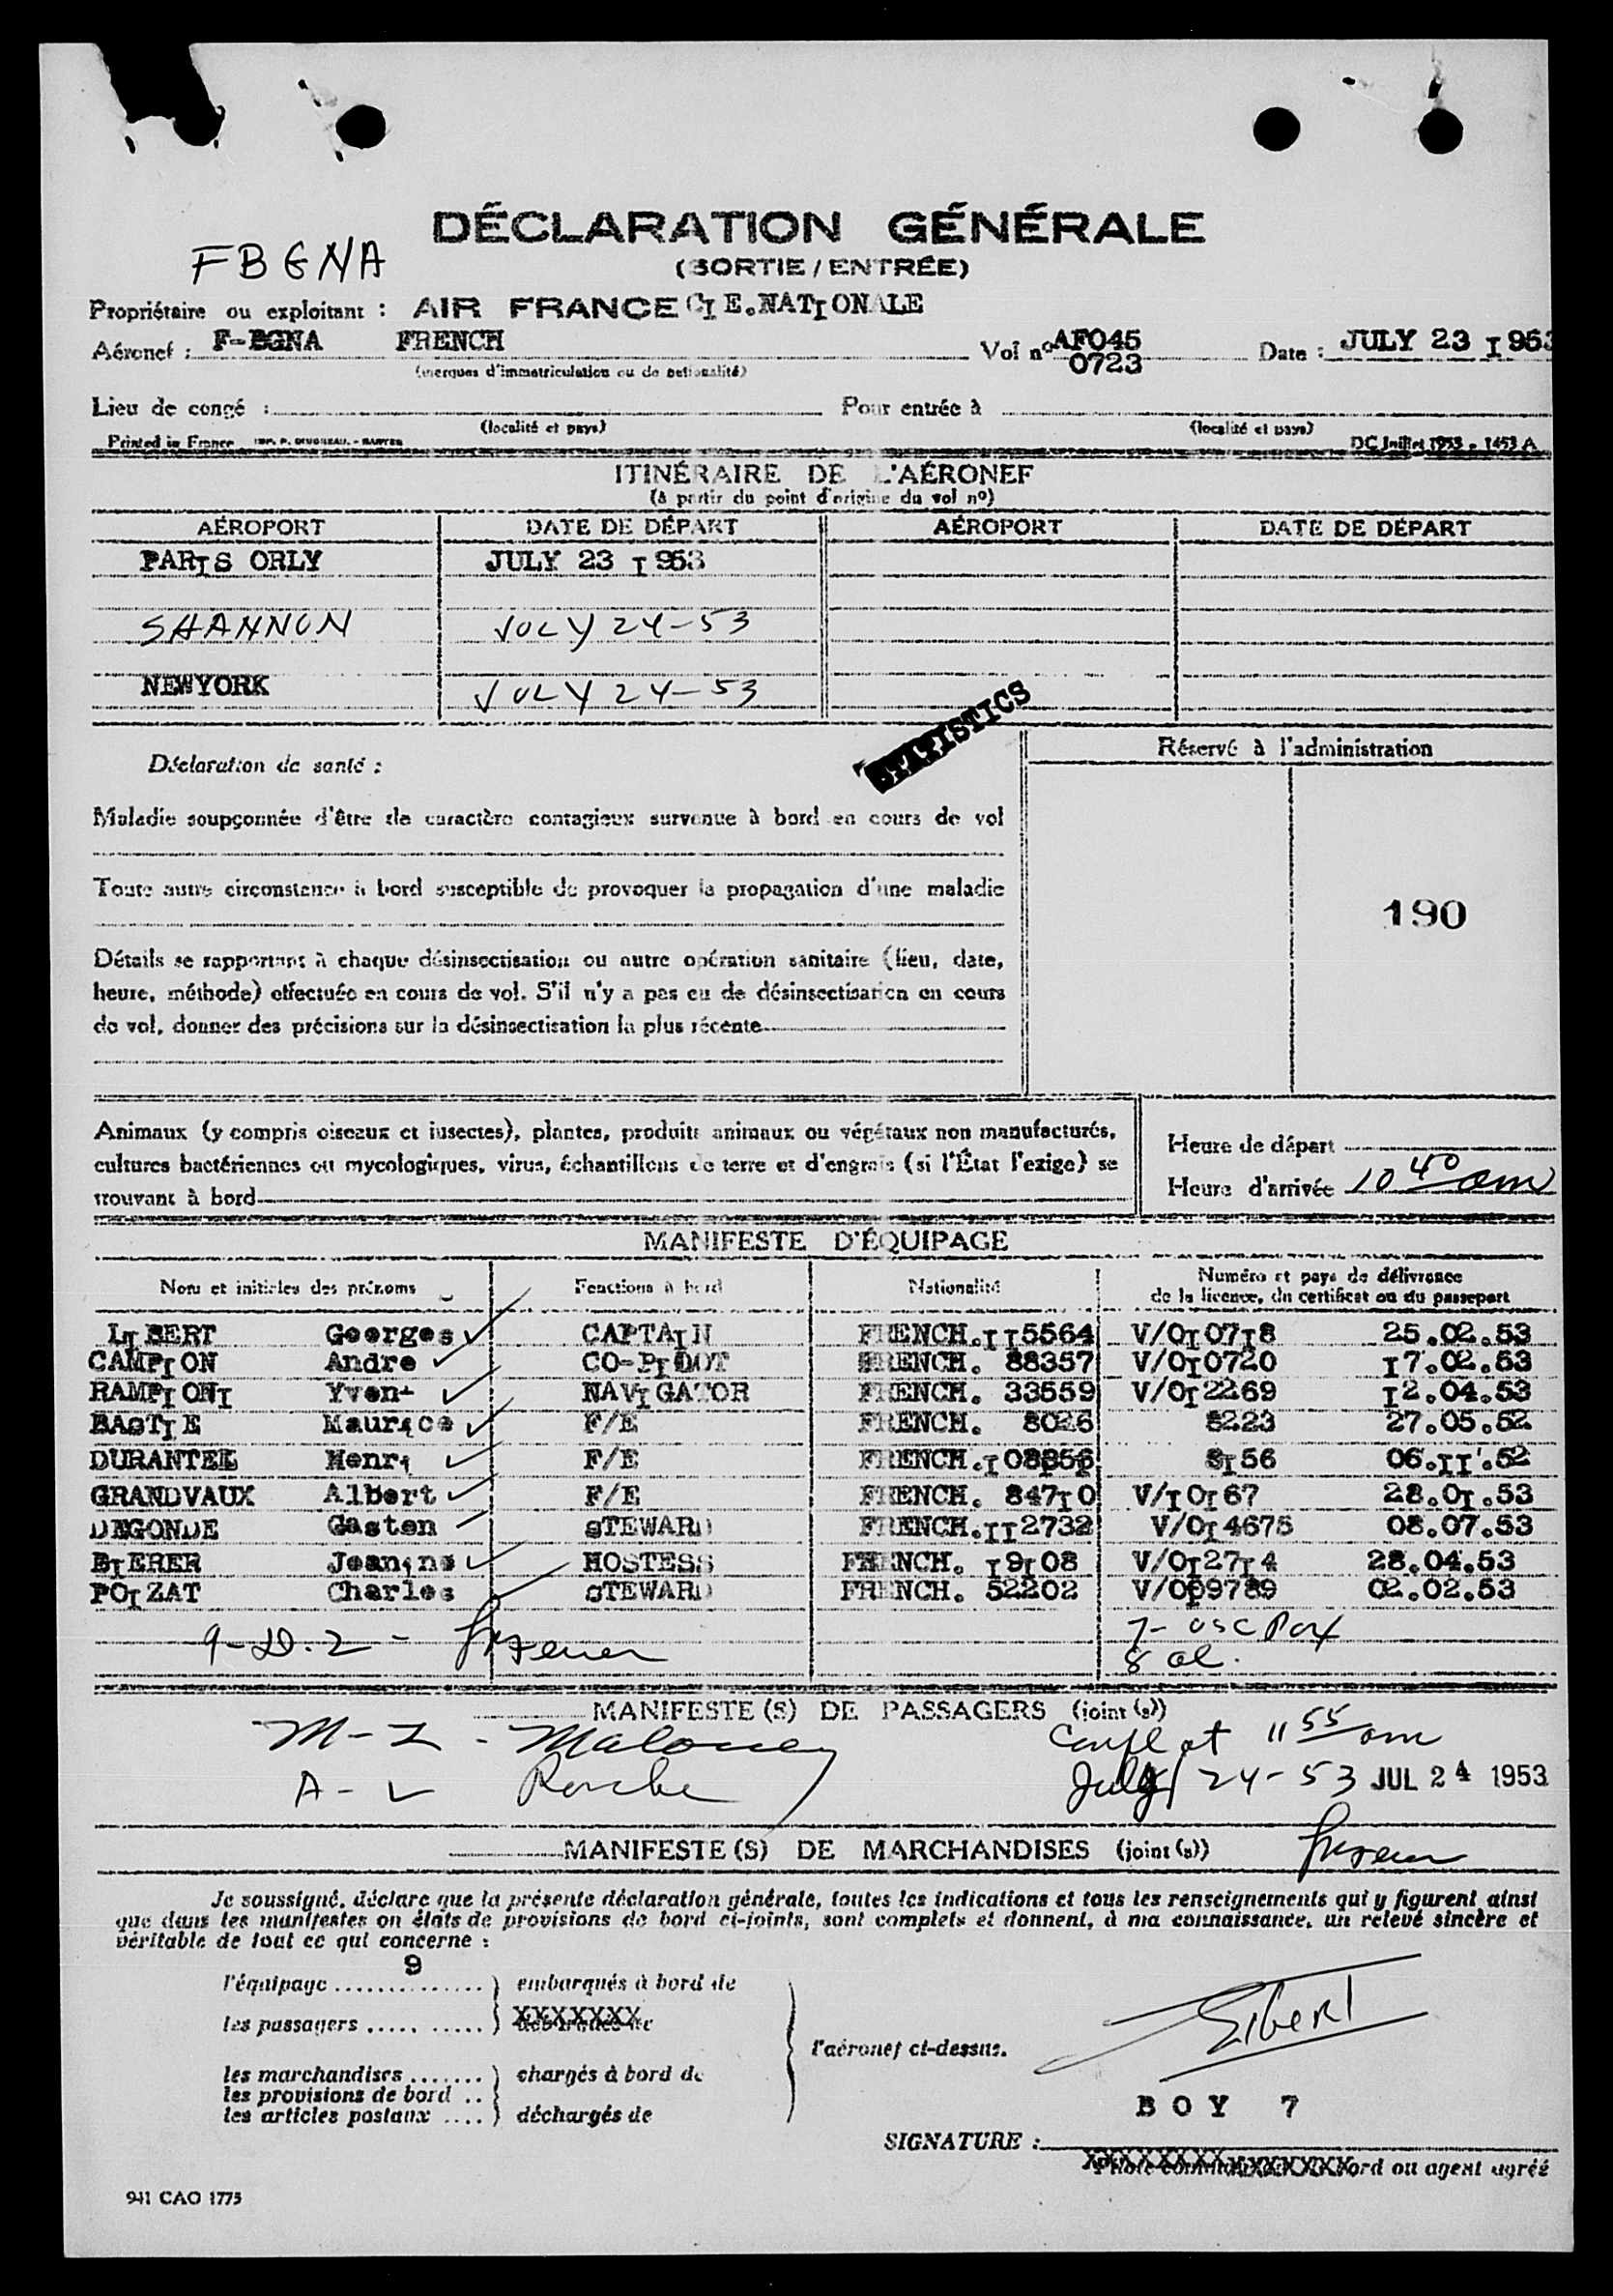 DÉCLARATION GÉNÉRALE
FBGNA
(SORTIE / ENTRÉE)
Propriétaire ou exploitant : AIR FRANCE CIE.NATIONALE
Aéronef : F-BGNA FRENCH Vol nº AF045 0723 Date : JULY 23 I953
(marques d'immatriculation ou de nationalité)
Lieu de congé : Pour entrée à
(localité et pays) (localité et pays)
Printed in France DC Juillet 1953 - 1453 A
ITINÉRAIRE DE L'AÉRONEF
(à partir du point d'origine du vol nº)
AÉROPORT DATE DE DÉPART AÉROPORT DATE DE DÉPART
PARIS ORLY JULY 23 I953
SHANNON JULY 24-53
NEWYORK JULY 24-53
STATISTICS
Réservé à l'administration
Déclaration de santé :
Maladie soupçonnée d'être de caractère contagieux survenue à bord en cours de vol
Toute autre circonstance à bord susceptible de provoquer la propagation d'une maladie
190
Détails se rapportant à chaque désinsectisation ou autre opération sanitaire (lieu, date,
heure, méthode) effectuée en cours de vol. S'il n'y a pas eu de désinsectisation en cours
de vol, donner des précisions sur la désinsectisation la plus récente
Animaux (y compris oiseaux et insectes), plantes, produits animaux ou végétaux non manufacturés,
cultures bactériennes ou mycologiques, virus, échantillons de terre et d'engrais (si l'État l'exige) se
trouvant à bord
Heure de départ
Heure d'arrivée 10 40 am
MANIFESTE D'ÉQUIPAGE
Nom et initiales des prénoms Fonctions à bord Nationalité Numéro et pays de délivrance
de la licence, du certificat ou du passeport
LIBERT Georges CAPTAIN FRENCH.II5564 V/OI07I8 25.02.53
CAMPION Andre CO-PILOT FRENCH. 88357 V/OI0720 I7.02.53
RAMPIONI Yvon NAVIGATOR FRENCH. 33559 V/OI2269 I2.04.53
BASTIE Maurice F/E FRENCH. 8026 8223 27.05.52
DURANTEL Henri F/E FRENCH.I08856 8I56 06.II.52
GRANDVAUX Albert F/E FRENCH. 847I0 V/IOI67 28.OI.53
DEGONDE Gaston STEWARD FRENCH.II2732 V/OI4675 08.07.53
BIERER Jeanine HOSTESS FRENCH. I9I08 V/OI27I4 28.04.53
POIZAT Charles STEWARD FRENCH. 52202 V/009789 02.02.53
9-D.2 -
8 al.
MANIFESTE (S) DE PASSAGERS (joint (s))
M-I - Maloney at 11 55 am
A - L July 24-53 JUL 24 1953
MANIFESTE (S) DE MARCHANDISES (joint (s))
Je soussigné, déclare que la présente déclaration générale, toutes les indications et tous les renseignements qui y figurent ainsi
que dans les manifestes ou états de provisions de bord ci-joints, sont complets et donnent, à ma connaissance, un relevé sincère et
véritable de tout ce qui concerne :
9
l'équipage .............. ) embarqués à bord de
les passagers ..... ..... ) XXXXXXX
l'aéronef ci-dessus.
Libert
les marchandises ....... ) chargés à bord de
les provisions de bord ..
les articles postaux .... ) déchargés de
BOY 7
SIGNATURE :
bord ou agent agréé
941 CAO 1775